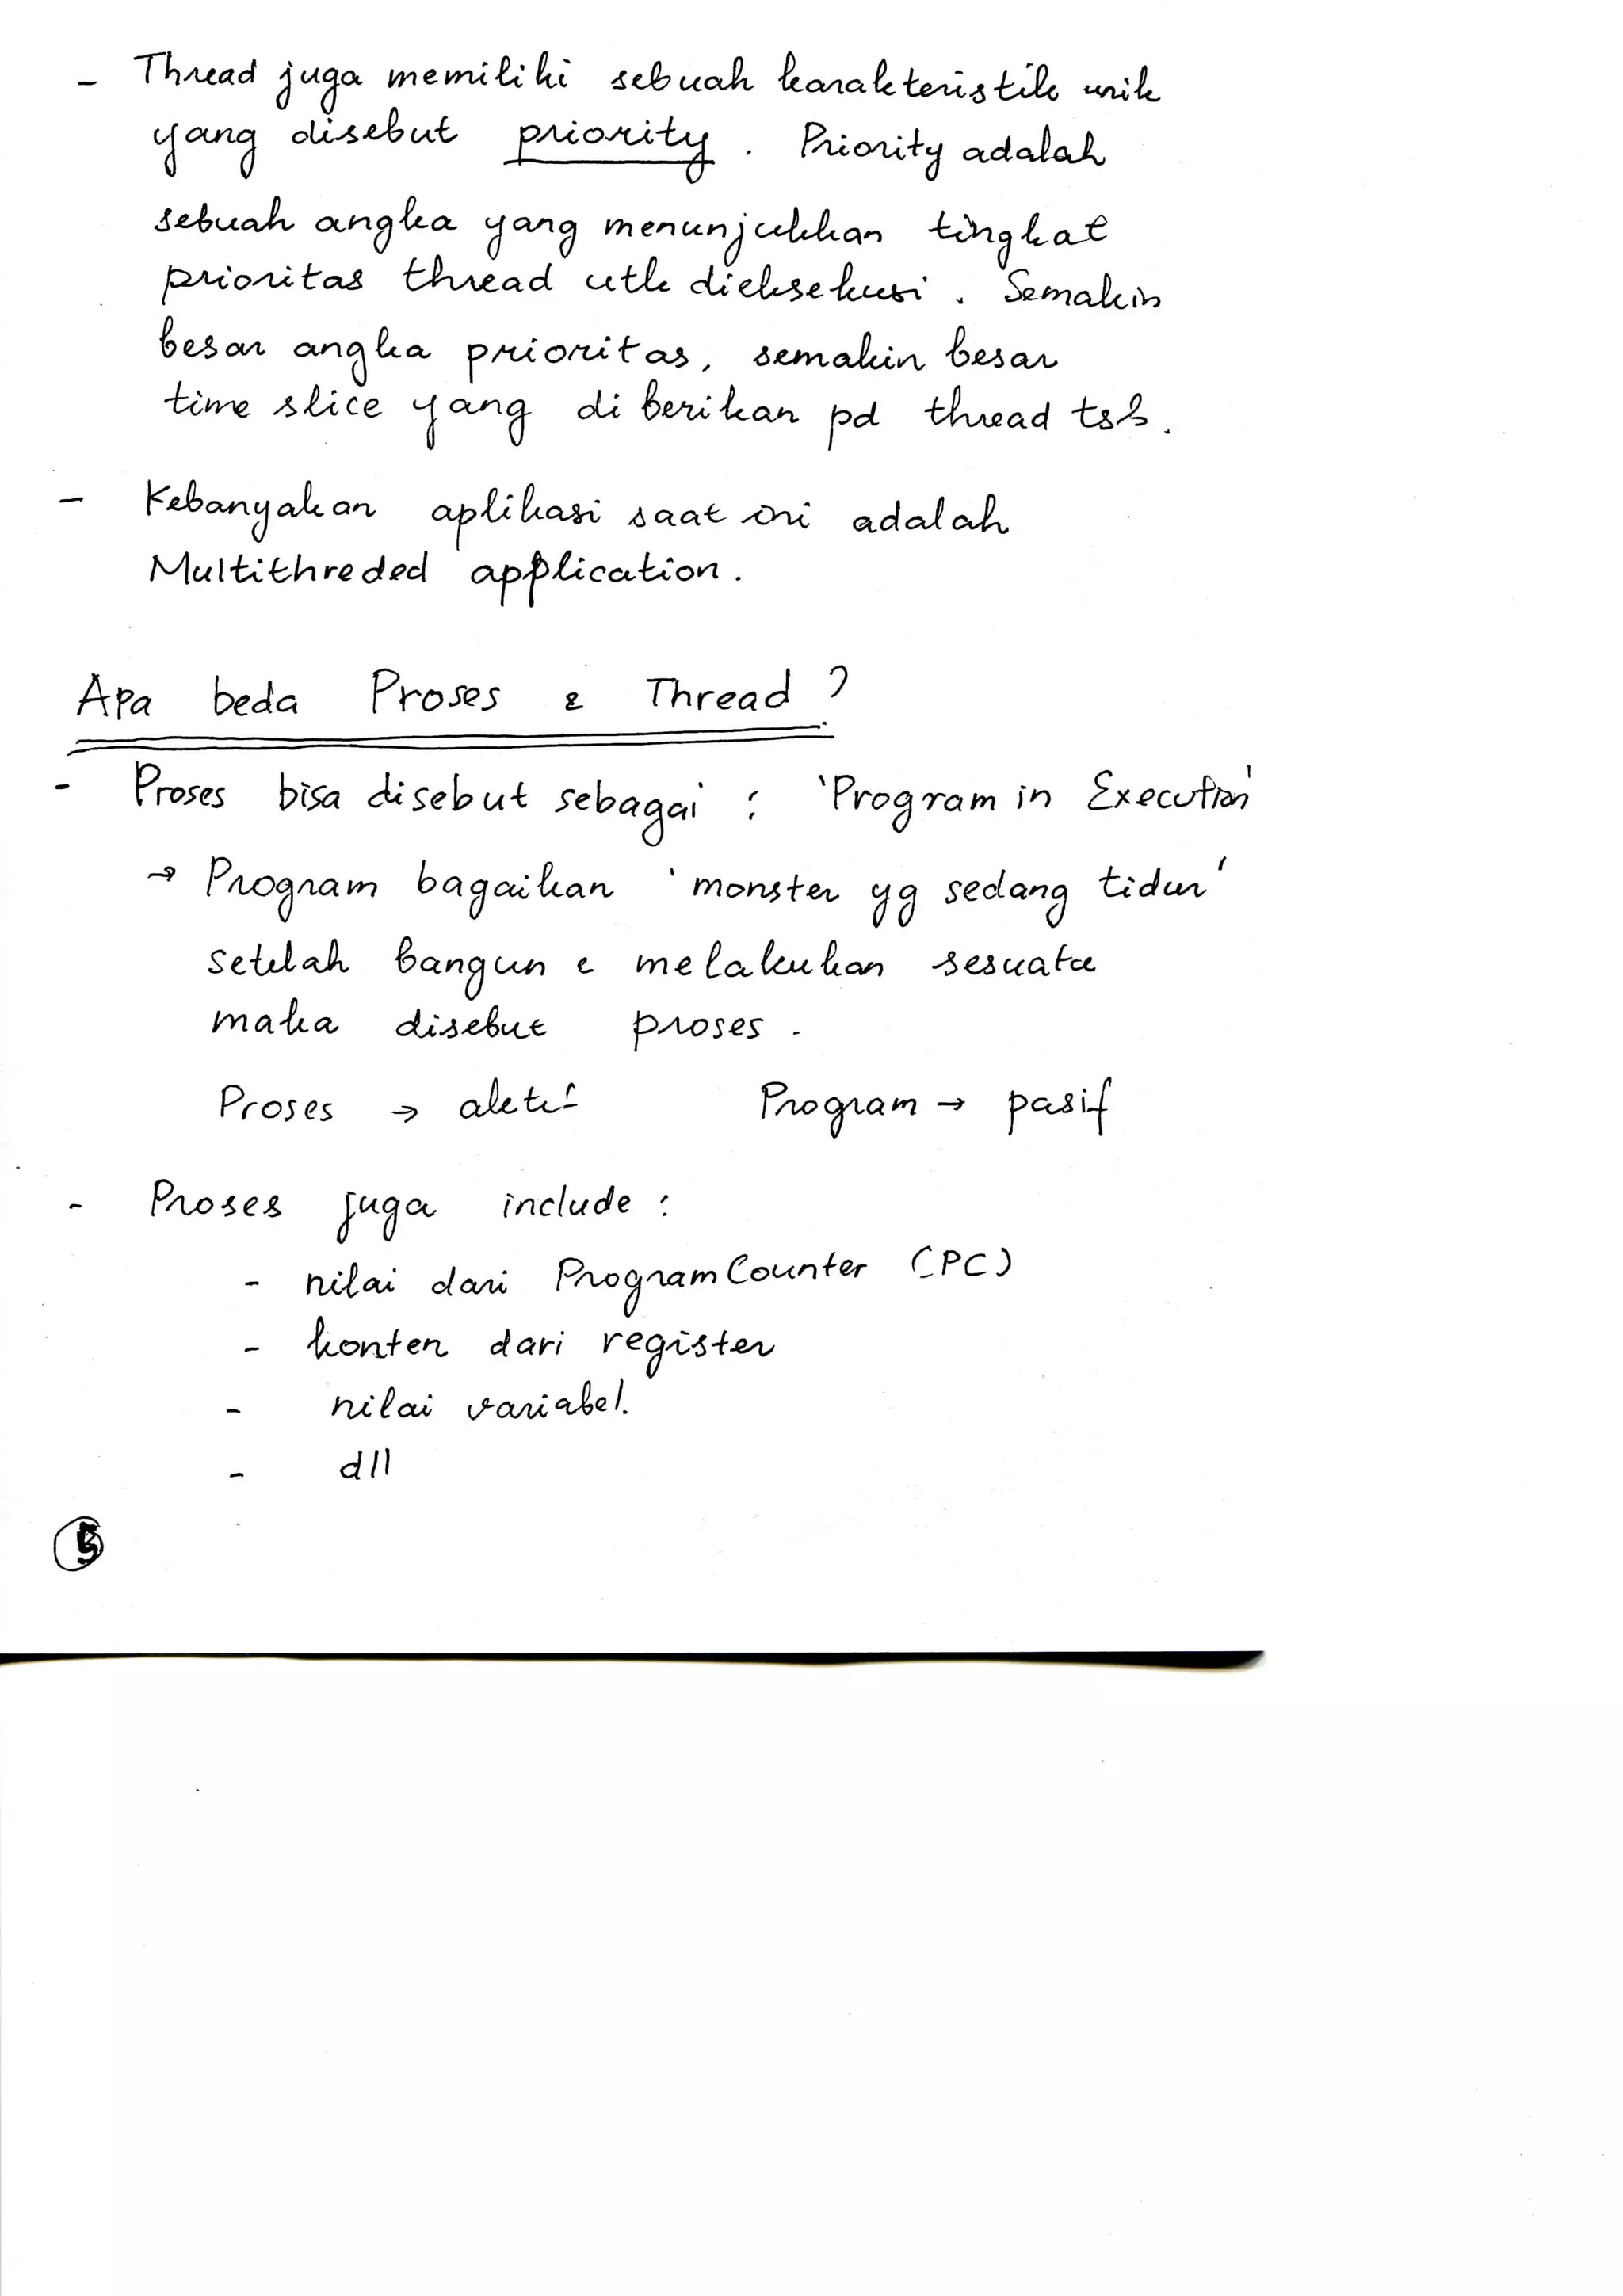 - Thread juga memiliki sebuah karakteristik unik
yang disebut priority. Priority adalah
sebuah angka yang menunjukkan tingkat
prioritas thread utk dieksekusi. Semakin
besar angka prioritas, semakin besar
time slice yang diberikan pd thread tsb.
- Kebanyakan aplikasi saat ini adalah
Multithreded application.
Apa beda Proses & Thread?
- Proses bisa disebut sebagai : 'Program in Execution'
→ Program bagaikan 'monster yg sedang tidur'
setelah bangun & melakukan sesuatu
maka disebut proses.
Proses → aktif Program → pasif
- Proses juga include :
- nilai dari Program Counter (PC)
- konten dari register
- nilai variabel.
- dll
5